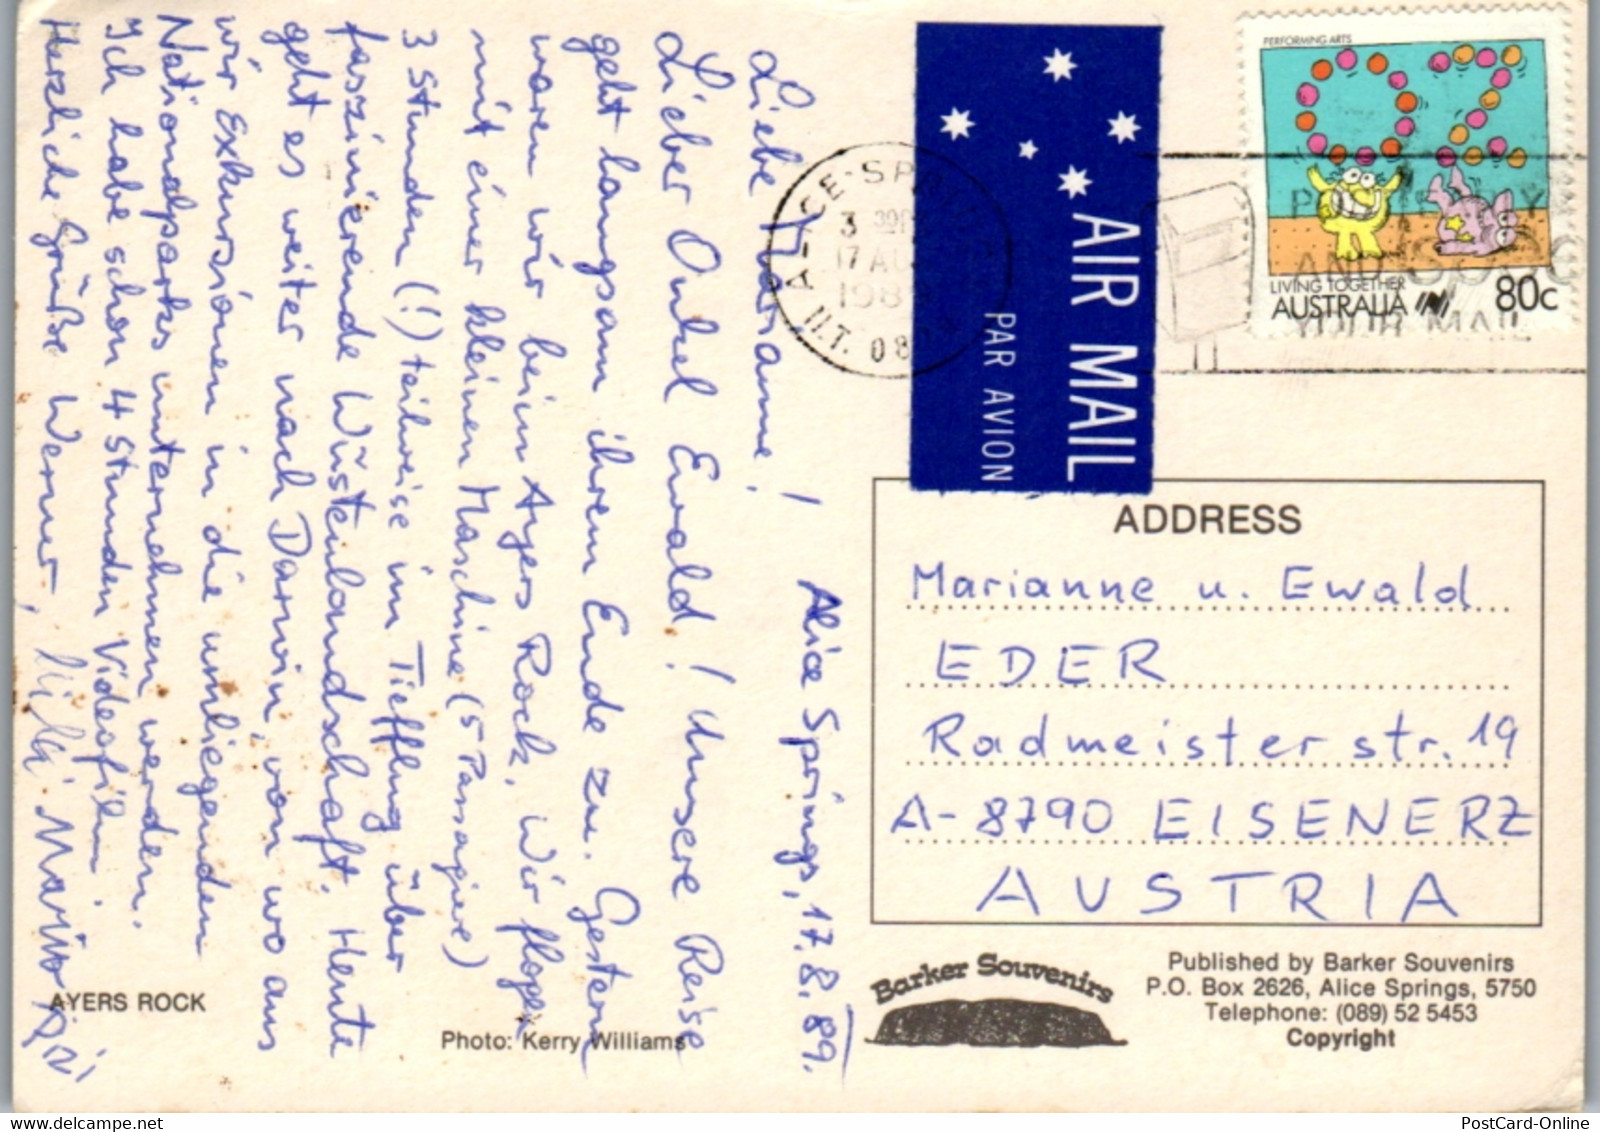 Alice Springs, 17.8.89.
Liebe Marianne!
Lieber Onkel Ewald! Unsere Reise
geht langsam ihrem Ende zu. Gestern
waren wir beim Ayers Rock. Wir flogen
mit einer kleinen Maschine (5 Passagiere)
3 Stunden (!) teilweise im Tiefflug über
faszinierende Wüstenlandschaft. Heute
geht es weiter nach Darwin, von wo aus
wir Exkursionen in die umliegenden
Nationalparks unternehmen werden.
Ich habe schon 4 Stunden Videofilm.
Herzliche Grüße Werner,
AYERS ROCK
Photo: Kerry Williams
AIR MAIL
PAR AVION
ALICE SPRINGS
3 30PM
17 AU
198
N.T. 08
PERFORMING ARTS
OZ
LIVING TOGETHER
AUSTRALIA 80c
AND
YOUR MAIL
ADDRESS
Marianne u. Ewald
EDER
Radmeisterstr. 19
A-8790 EISENERZ
AUSTRIA
Barker Souvenirs
Published by Barker Souvenirs
P.O. Box 2626, Alice Springs, 5750
Telephone: (089) 52 5453
Copyright
PostCard-Online